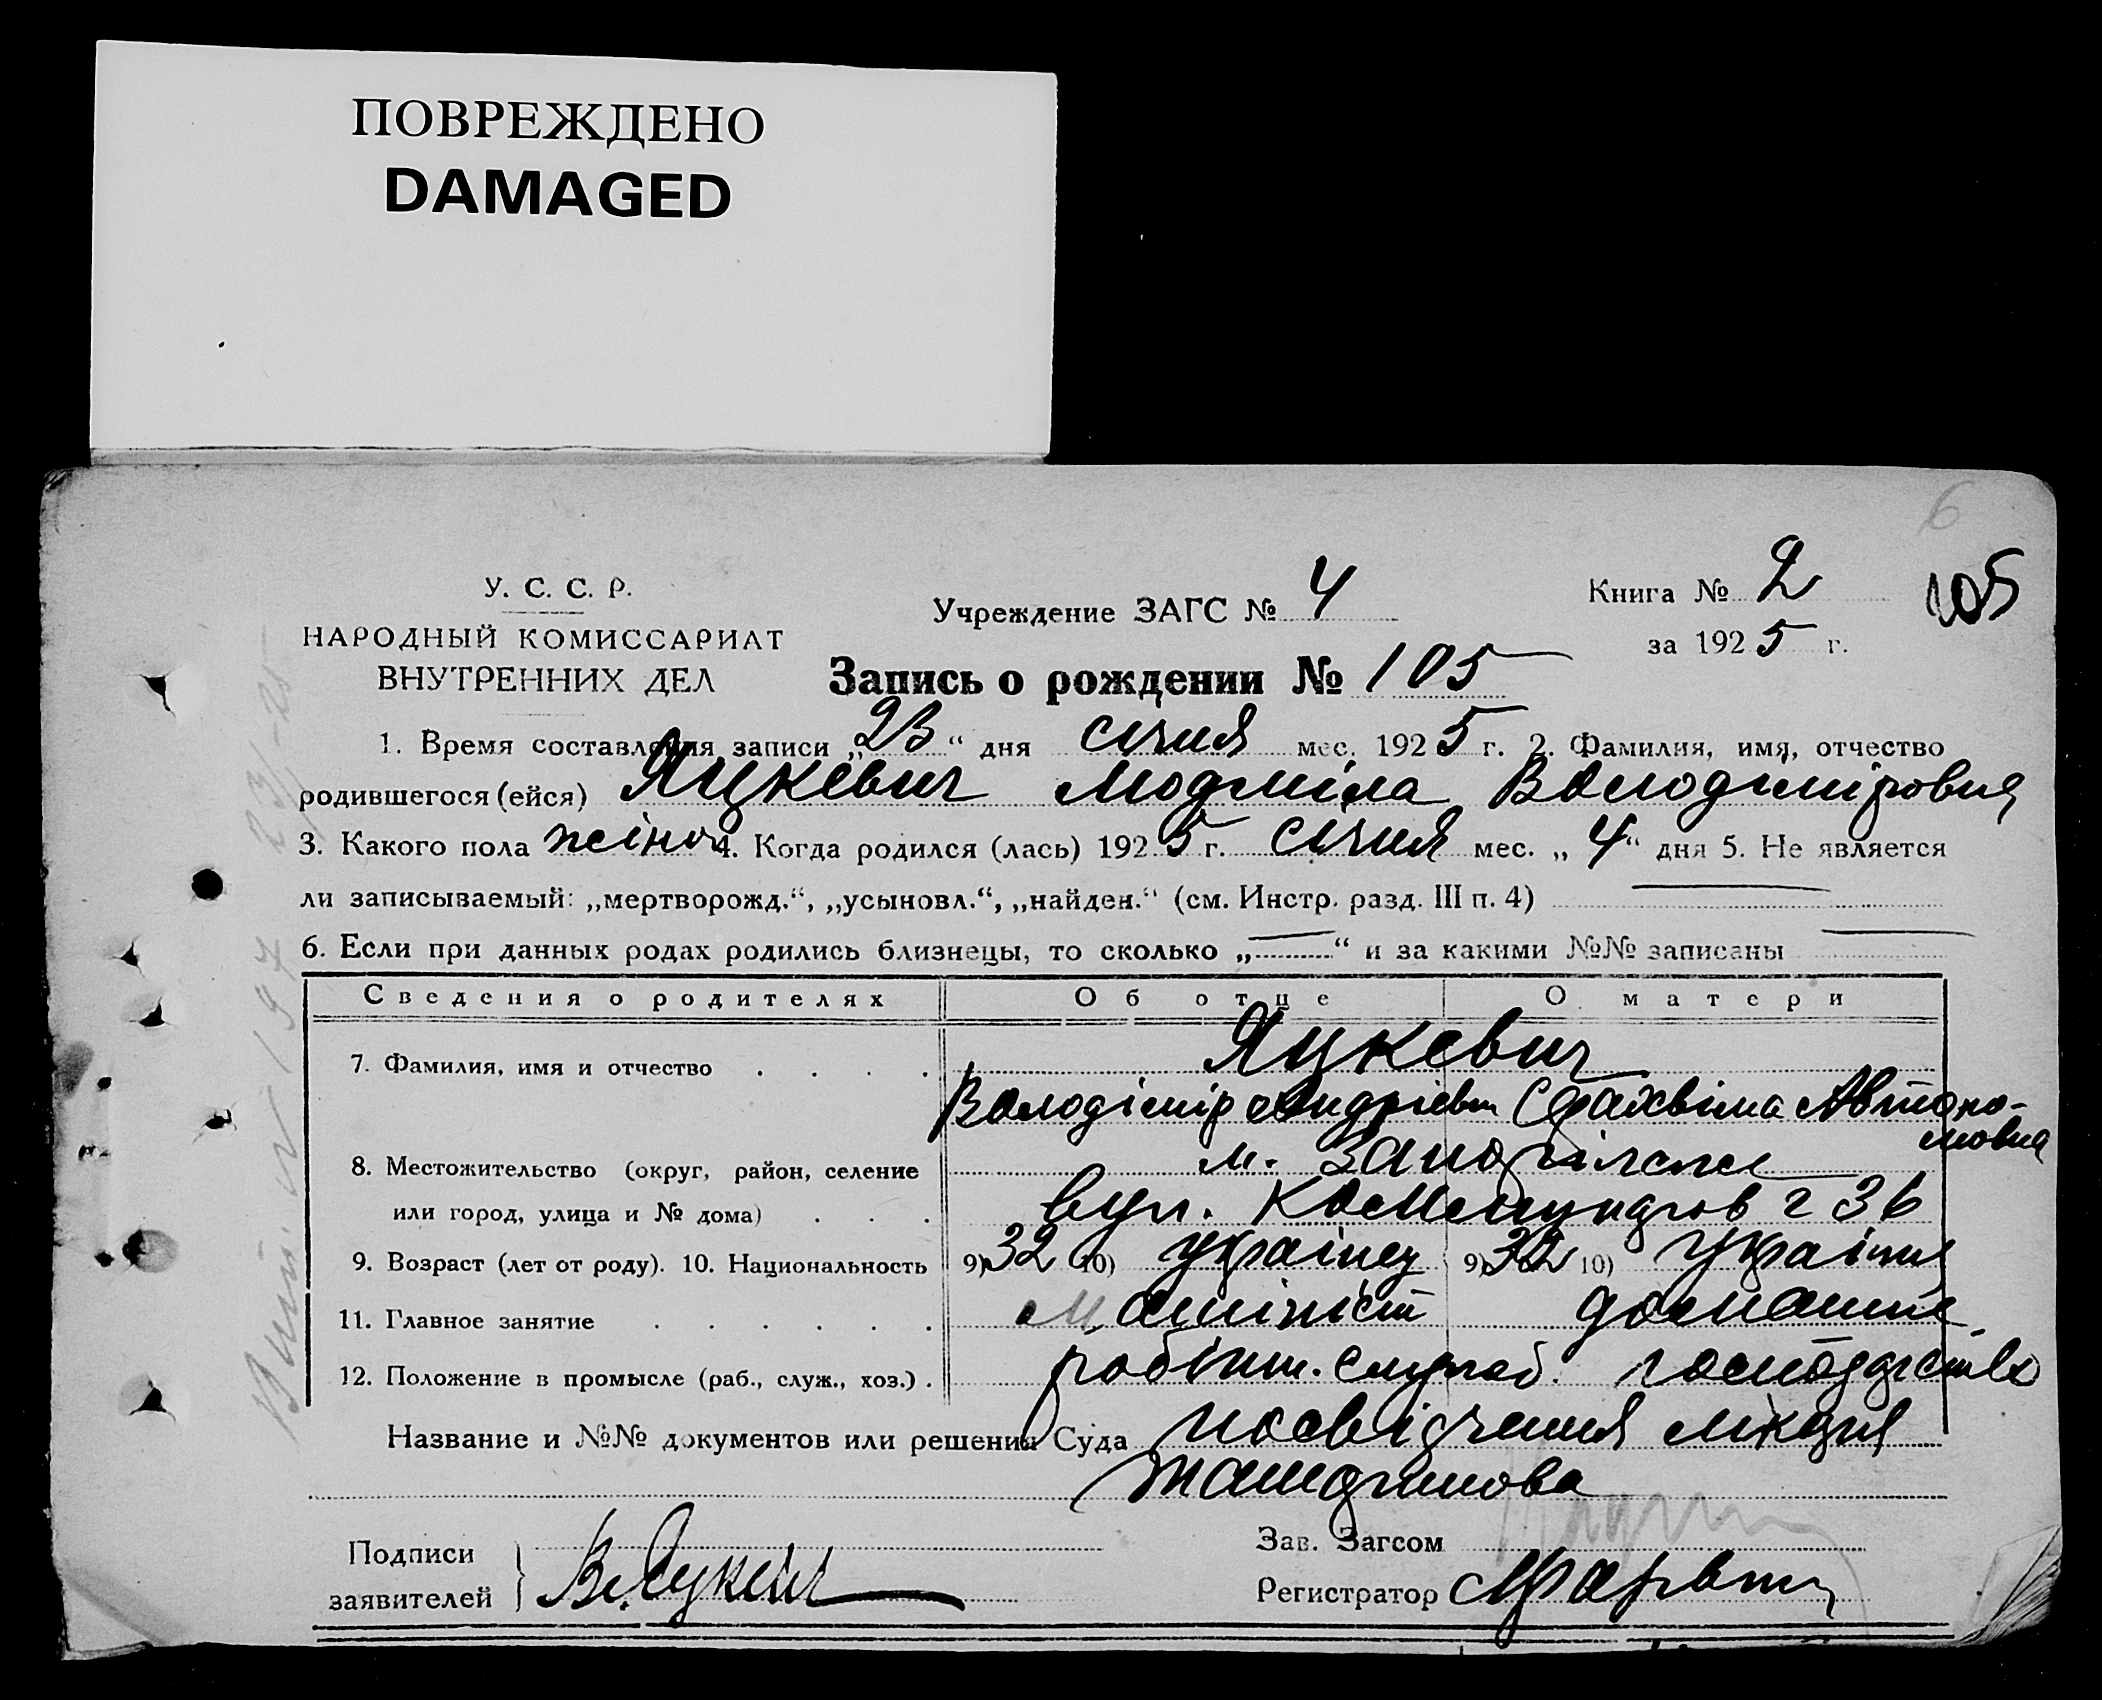 ПОВРЕЖДЕНО
DAMAGED
6
У. С. С. Р.
НАРОДНЫЙ КОМИССАРИАТ
ВНУТРЕННИХ ДЕЛ
Учреждение ЗАГС № 4
Книга № 2
105
за 1925 г.
Запись о рождении № 105
1. Время составления записи „23“ дня січня мес. 1925 г. 2. Фамилия, имя, отчество
родившегося (ейся) Яцкевич Людміла Володімировна
3. Какого пола жіноч 4. Когда родился (лась) 1925 г. січня мес. „4“ дня 5. Не является
ли записываемый: „мертворожд.“, „усыновл.“, „найден.“ (см. Инстр. разд. III п. 4) —
6. Если при данных родах родились близнецы, то сколько „—“ и за какими №№ записаны —
Сведения о родителях Об отце О матери
7. Фамилия, имя и отчество . . . . Яцкевич
Володімір Андрієвич Серахвіма Автоно-
мовна
8. Местожительство (округ, район, селение м.
или город, улица и № дома) . . . вул. Комунаров 2 36
9. Возраст (лет от роду). 10. Национальность 9) 32 10) Українец 9) 32 10) Українка
11. Главное занятие . . . . . . Машініст домашнє
12. Положение в промысле (раб., служ., хоз.) . господарство
Название и №№ документов или решении Суда посвідчення лікаря
Подписи
заявителей } В. Яцкевич
Зав. Загсом
Регистратор